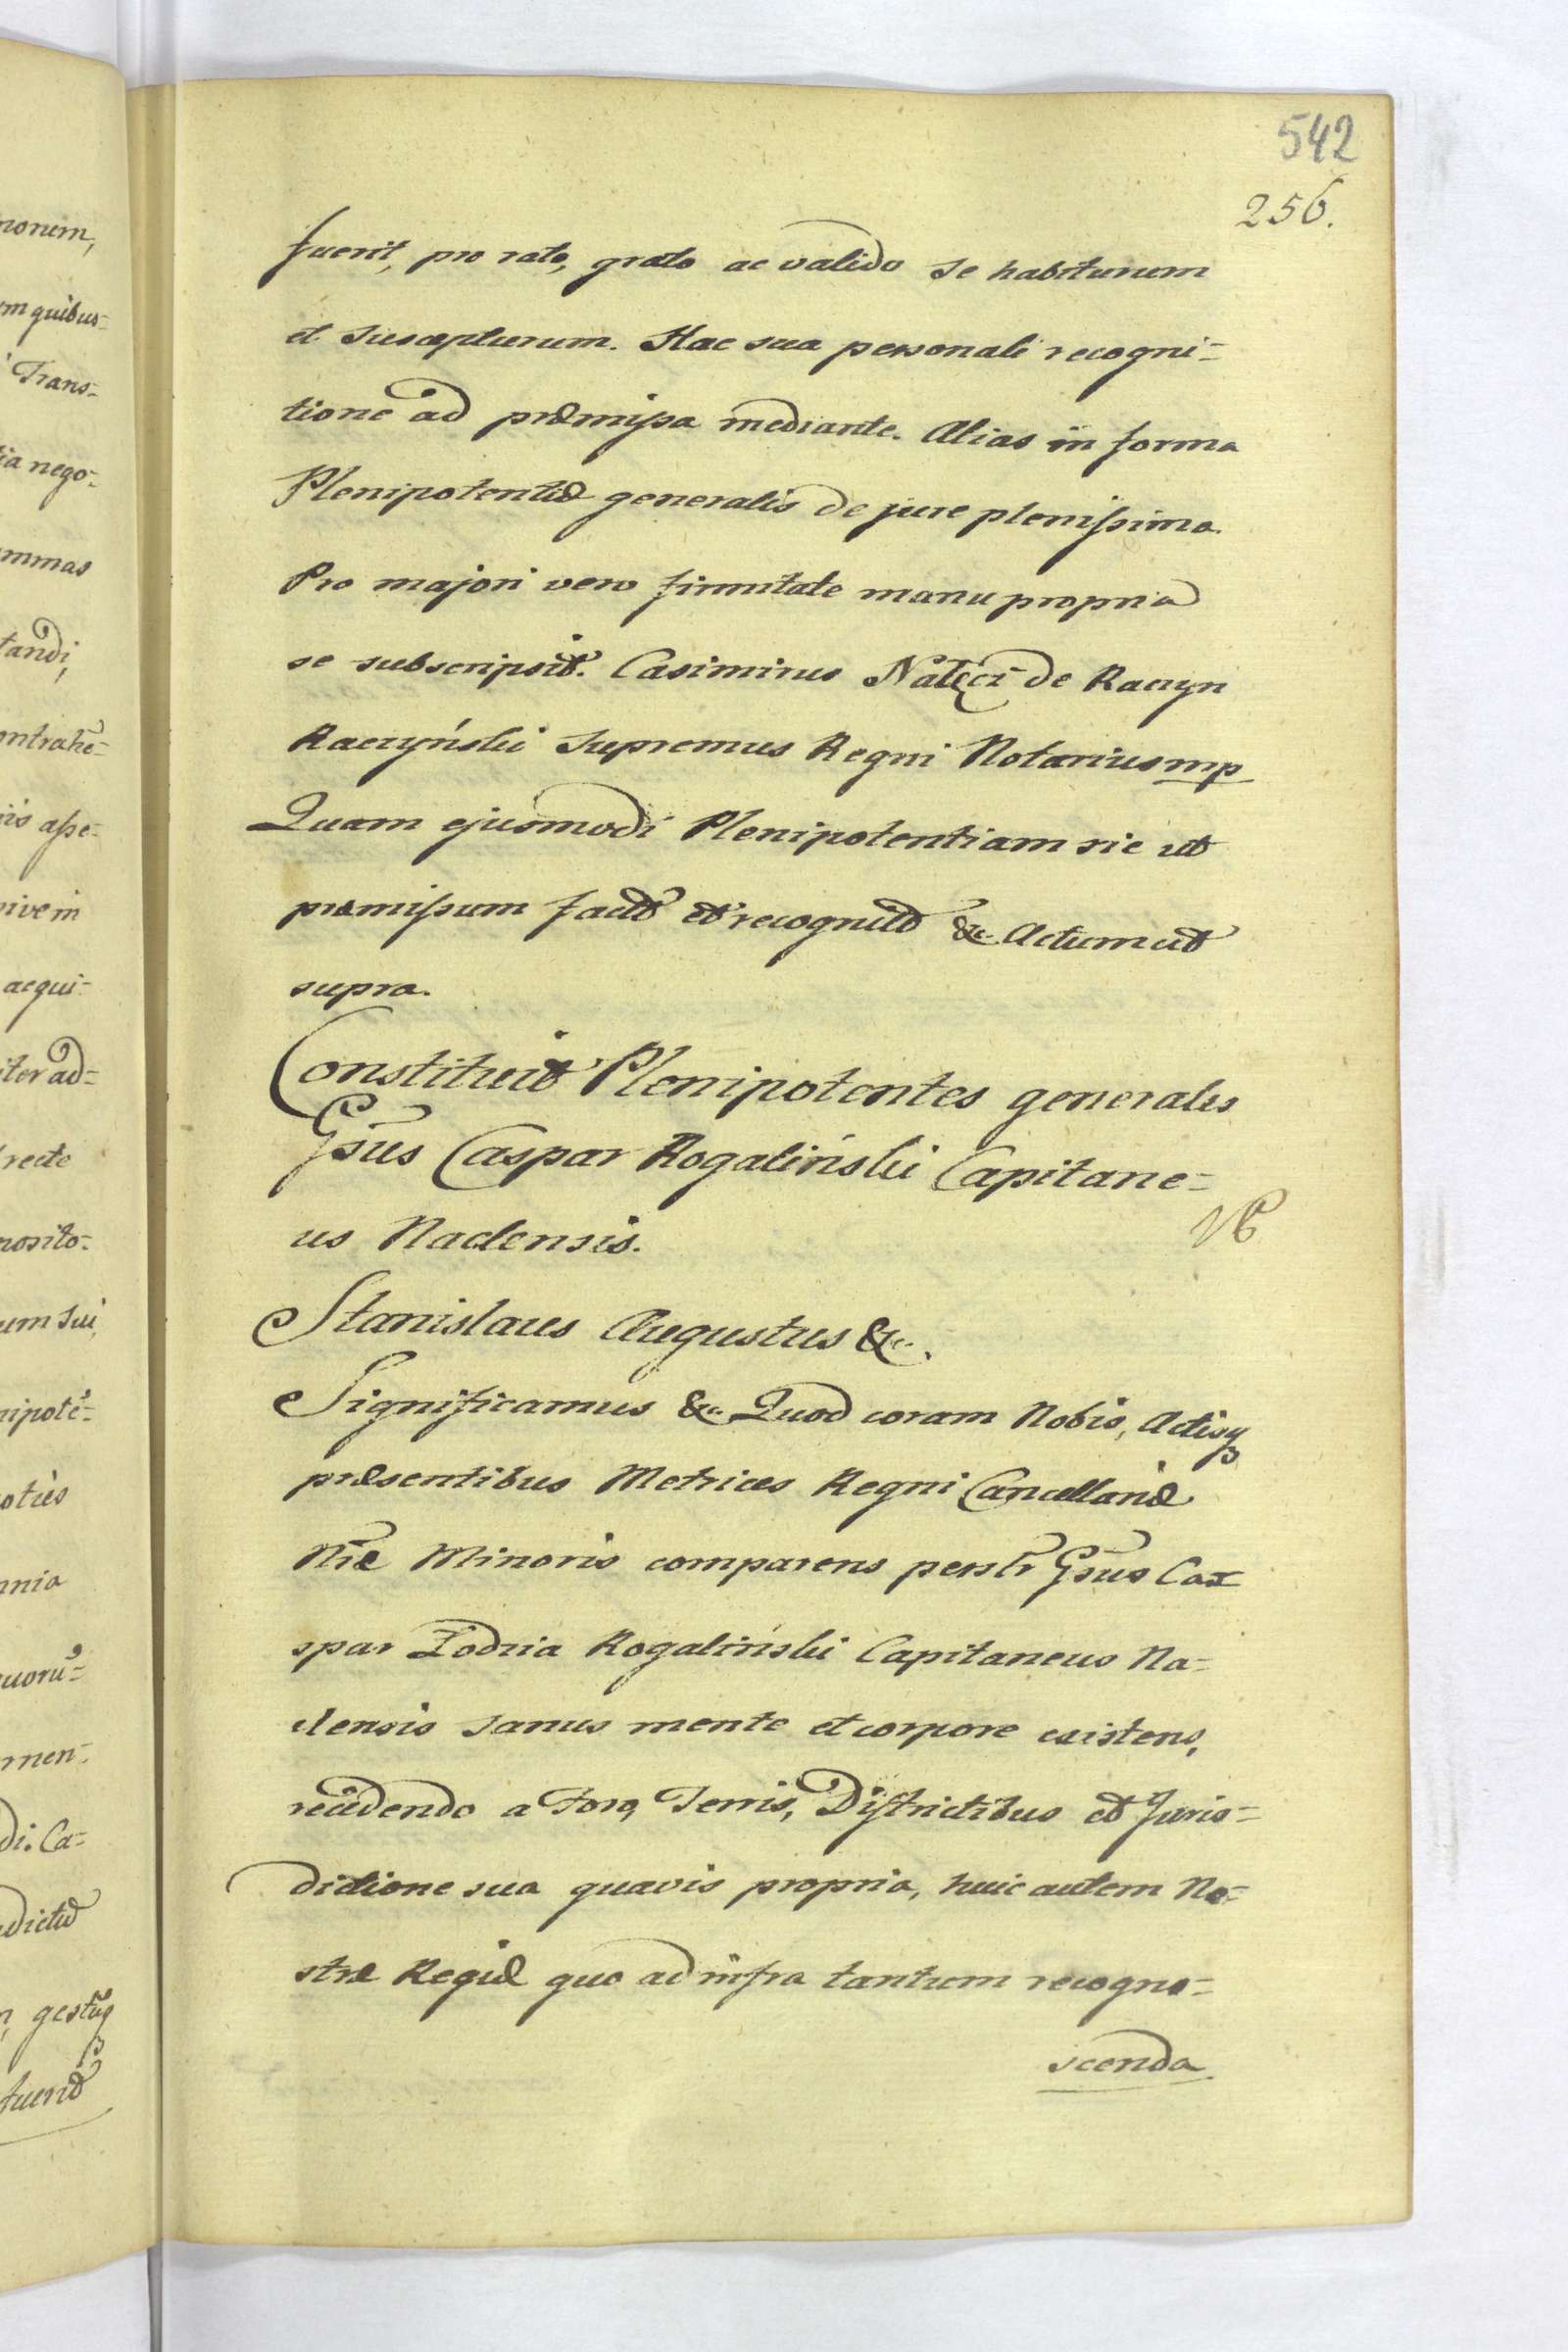 542
256.
fuerit, pro rato, grato ac valido se habiturum
et suscepturum. Hac sua personali recogni=
tione ad præmissa mediante. Alias in forma
Plenipotentiæ generalis de jure plenissima.
Pro majori vero firmitate manu propria
se subscripsit. Casimirus Nałęcz de Raczyn
Raczyński Supremus Regni Notarius mp
Quam ejusmodi Plenipotentiam sic ut
præmissum factā et recognitā &c. Actum ut
supra.
Constituit Plenipotentes generales
Gsus Caspar Rogaliński Capitane=
us Naclensis.
Stanislaus Augustus &c.
Significamus &c. Quod coram Nobis, Actisq
præsentibus Metrices Regni Cancellariæ
Nræ Minoris comparens persltr Gsus Ca=
spar Łodzia Rogaliński Capitaneus Na=
clensis sanus mente et corpore existens,
recedendo a Foro, Terris, Districtibus et Juris=
dictione sua quavis propria, huic autem No=
stræ Regiæ quo ad infra tantum recogno=
scenda